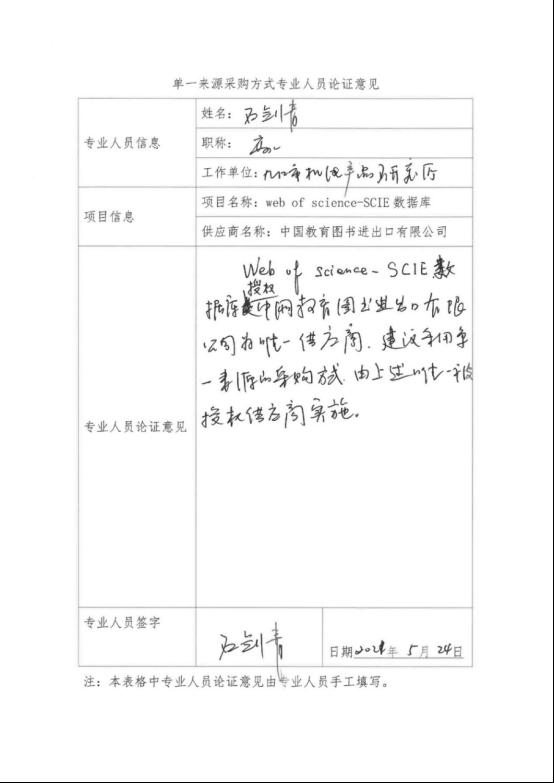 单一来源采购方式专业人员论证意见
专业人员信息
姓名：石剑青
职称：高工
工作单位：九江市机电产品研究所
项目信息
项目名称：web of science-SCIE 数据库
供应商名称：中国教育图书进出口有限公司
专业人员论证意见
Web of science-SCIE 数
据库授权中国教育图书进出口有限
公司为唯一供应商，建议采用单
一来源的采购方式，由上述唯一被
授权供应商实施。
专业人员签字
石剑青
日期2024年 5月 24日
注：本表格中专业人员论证意见由专业人员手工填写。